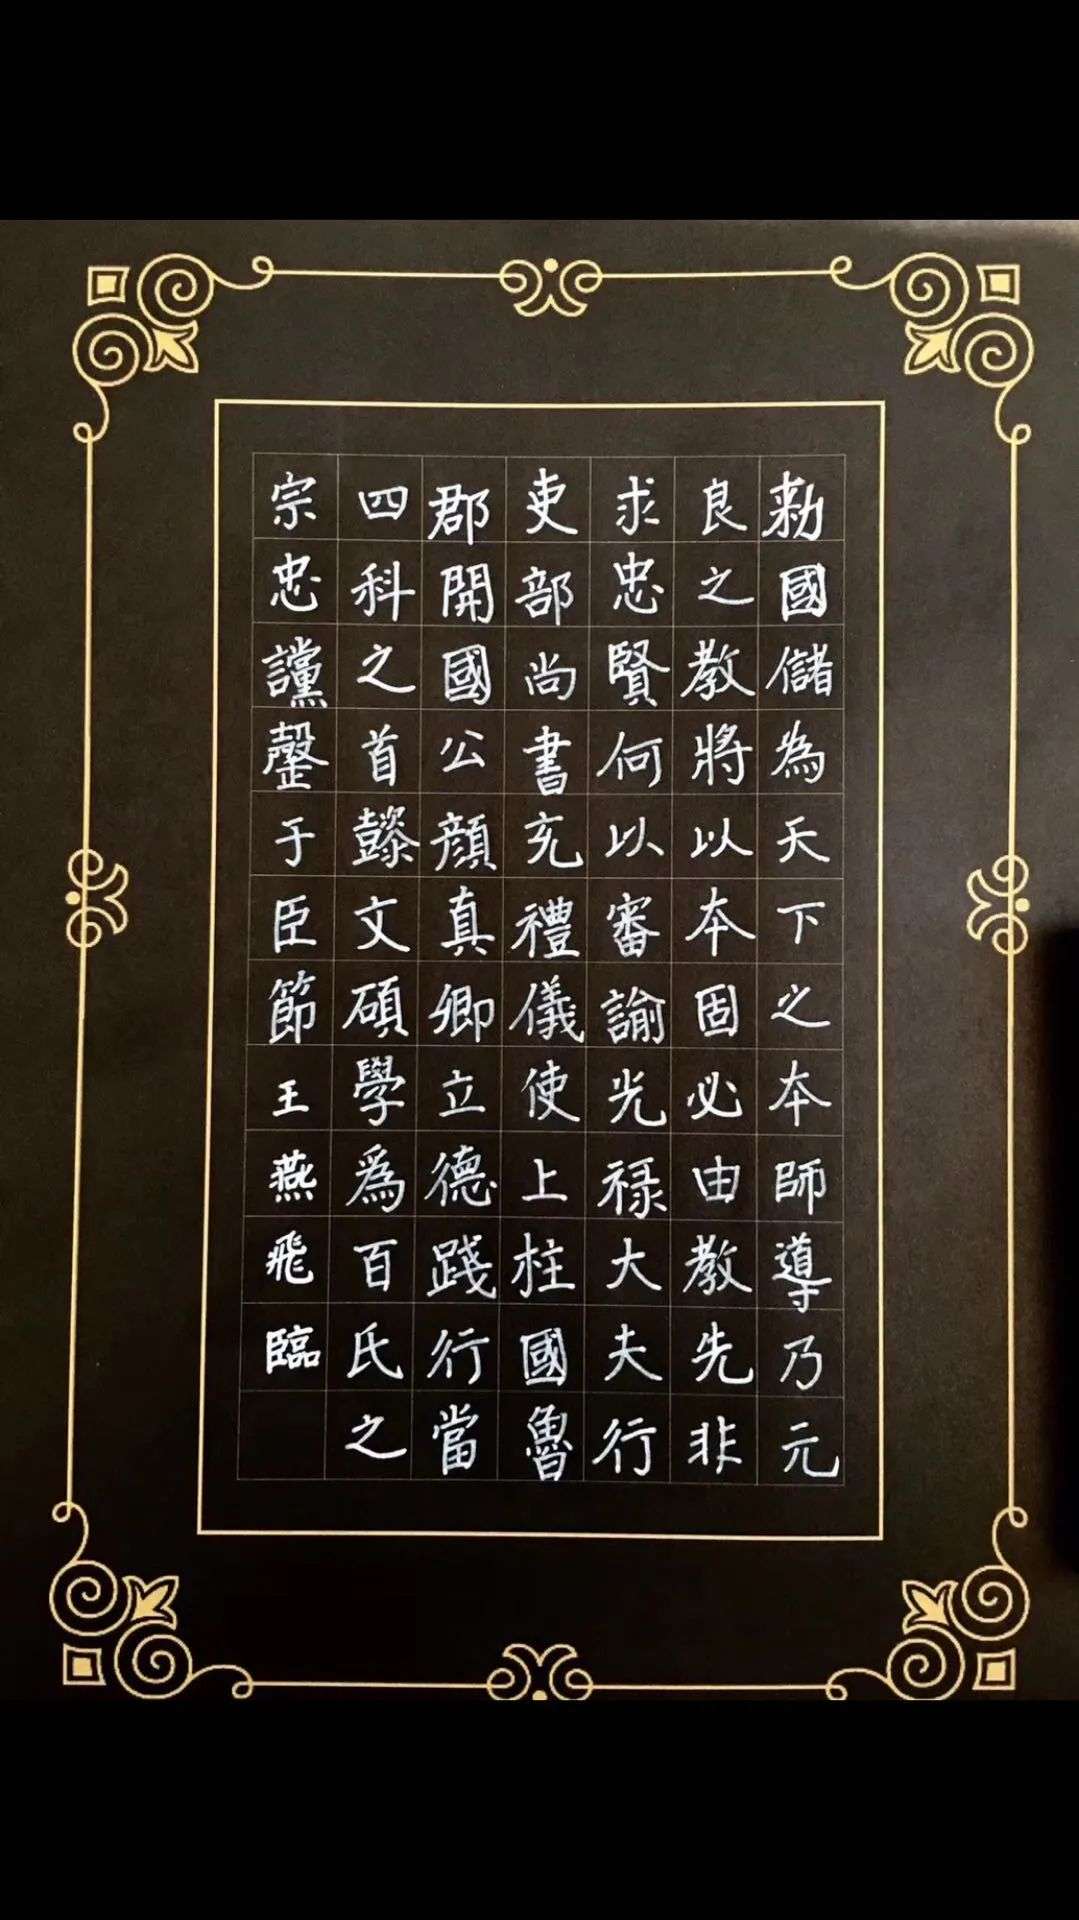 勅國儲為天下之本師導乃元
良之教將以本固必由教先非
求忠賢何以審諭光祿大夫行
吏部尚書充禮儀使上柱國魯
郡開國公顏真卿立德踐行當
四科之首懿文碩學爲百氏之
宗忠讜罄于臣節王燕飛臨